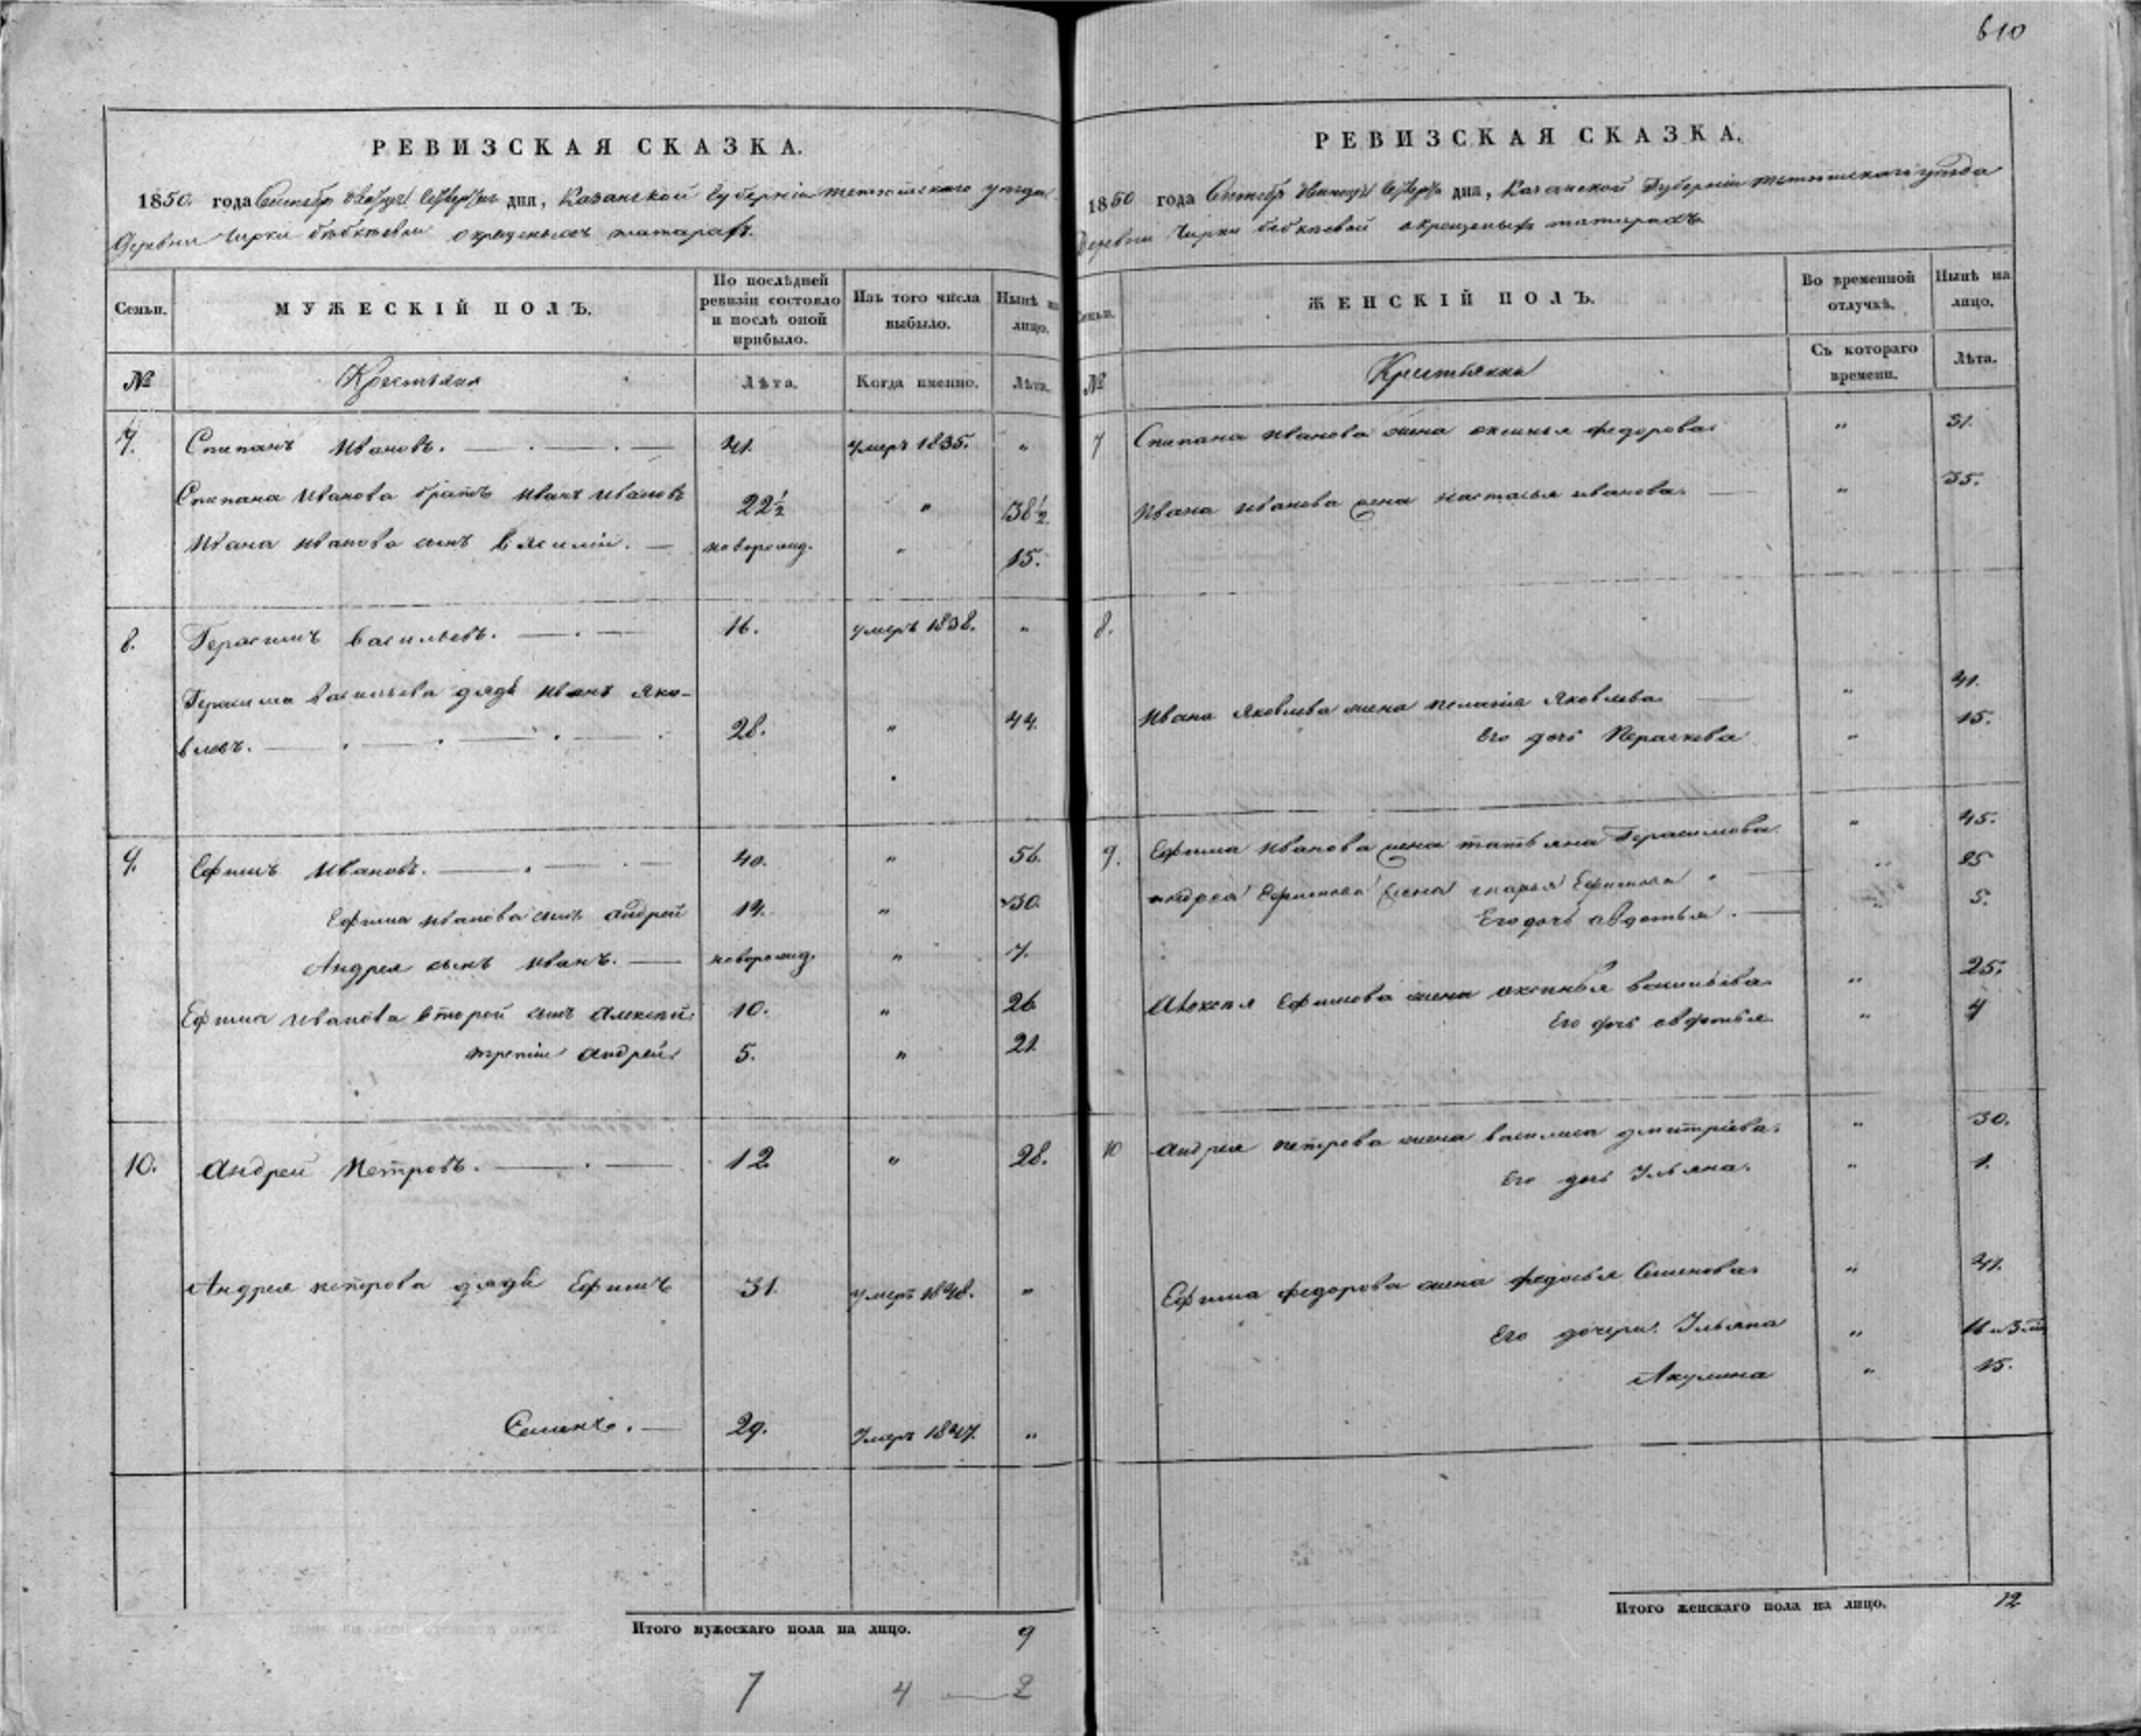 610
РЕВИЗСКАЯ СКАЗКА.
1850. года Сентября двадцать четвертаго дня, Казанской Губерніи Тетюшскаго уезда
Деревни Чирки бебкеевой окрещеныхъ татаръ.
Семьи. МУЖЕСКІЙ ПОЛЪ. По послѣдней ревизіи состояло и послѣ оной прибыло. Изъ того числа выбыло. Нынѣ на лицо.
№ Крестьяне Лѣта. Когда именно. Лѣта.
7. Степанъ Ивановъ. 41. умеръ 1835. „
Степана Иванова братъ Иванъ Ивановъ 22½ „ 38½
Ивана Иванова сынъ Василій. новорожд. „ 15.
8. Герасимъ Васильевъ. 16. умеръ 1838. „
Герасима Васильева дядя Иванъ Яко-
влевъ. 28. „ 44.
9. Ефимъ Ивановъ. 40. „ 56.
Ефима Иванова сынъ Андрей 14. „ 30.
Андрея сынъ Иванъ. новорожд. „ 7.
Ефима Иванова второй сынъ Алексей. 10. „ 26
третій Андрей. 5. „ 21.
10. Андрей Петровъ. 12 „ 28.
Андрея Петрова дядя Ефимъ 31. умеръ 1848. „
Семенъ. 29. Умеръ 1847. „
Итого мужескаго пола на лицо. 9
7 4 — 2
РЕВИЗСКАЯ СКАЗКА.
1850 года Сентября двадцать четвертаго дня, Казанской Губерніи Тетюшскаго уезда
Деревни Чирки бебкеевой окрещеныхъ татаръ
Семьи. ЖЕНСКІЙ ПОЛЪ. Во временной отлучкѣ. Нынѣ на лицо.
№ Крестьянки Съ котораго времени. Лѣта.
7 Степана Иванова жена Оксинья Федорова. „ 51.
Ивана Иванова жена Настасья Иванова. „ 35.
8.
Ивана Яковлева жена Пелагія Яковлева. „ 41.
Его дочь Парасковья „ 15.
9. Ефима Иванова жена Татьяна Герасимова. „ 45.
Андрея Ефимова жена Марья Ефимова „ 25
Его дочь Авдотья. „ 5.
Алексея Ефимова жена Оксинья Васильева. „ 25.
Его дочь Авдотья. „ 4
10 Андрея Петрова жена Василиса Дмитріева. „ 30.
Его дочь Ульяна. „ 1.
Ефима Федорова жена Федосья Семенова. „ 41.
Его дочери. Ульяна „
Акулина „ 15.
Итого женскаго пола на лицо. 12